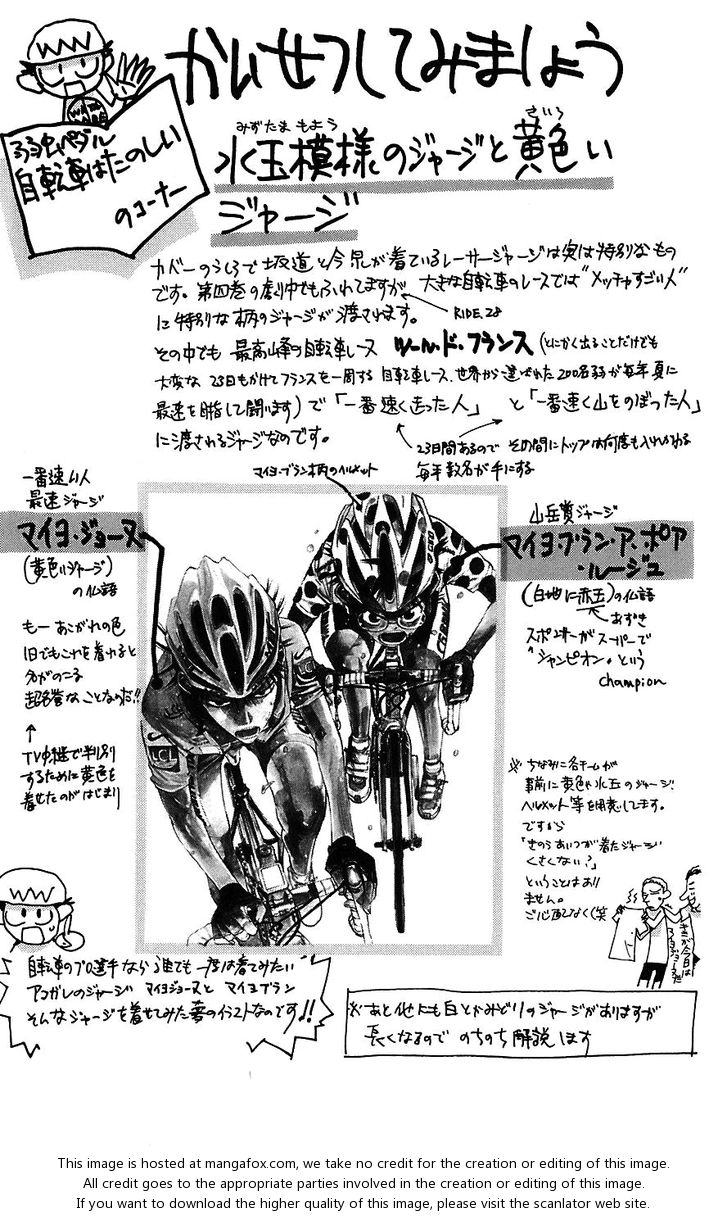 かいせつしてみましょう
弱虫ペダル
自転車はたのしい
のコーナー
みずたま もよう
水玉模様のジャージと黄色い
ジャージ
カバーのうしろで坂道と今泉が着ているレーサージャージは実は特別なもの
です。第四巻の劇中でもふれてますが、大きな自転車のレースでは"メッチャすごい人"
に特別な柄のジャージが渡されます。
RIDE.28
その中でも 最高峰の自転車レース ツール・ド・フランス (とにかく出ることだけでも
大変な 23日もかけてフランスを一周する 自転車レース、世界から選ばれた200名弱が毎年夏に
最速を目指して闘います)で「一番速く走った人」 と「一番速く山をのぼった人」
に渡されるジャージなのです。
23日間あるので その間にトップは何度も入れかわる
毎年数名が手にする
マイヨ・ブラン柄のヘルメット
一番速い人
最速ジャージ
マイヨ・ジョーヌ
(黄色いジャージ)
の仏語
もー あこがれの色
1日でもこれを着れると
名がのこる
超名誉なことなのだ!!
↑
TV中継で判別
するために黄色を
着せたのがはじまり
山岳賞ジャージ
マイヨ・ブラン・ア・ポア
・ルージュ
(白地に赤玉)の仏語
あずき
スポンサーがスーパーで
"シャンピオン"という
champion
LCL
※ちなみに各チームが
事前に黄色や水玉のジャージ
ヘルメット等を用意してます。
ですから
「きのうあいつが着たジャージ
くさくない?」
ということはあり
ません。
ご心配なく(笑
自転車のプロ選手なら誰でも一度は着てみたい
アコガレのジャージ マイヨジョーヌと マイヨブラン
そんなジャージを着せてみた夢のイラストなのです!!
※あと他にも白とかみどりのジャージがありますが
長くなるので のちのち解説します
This image is hosted at mangafox.com, we take no credit for the creation or editing of this image.
All credit goes to the appropriate parties involved in the creation or editing of the image.
If you want to download the higher quality of this image, please visit the scanlator web site.